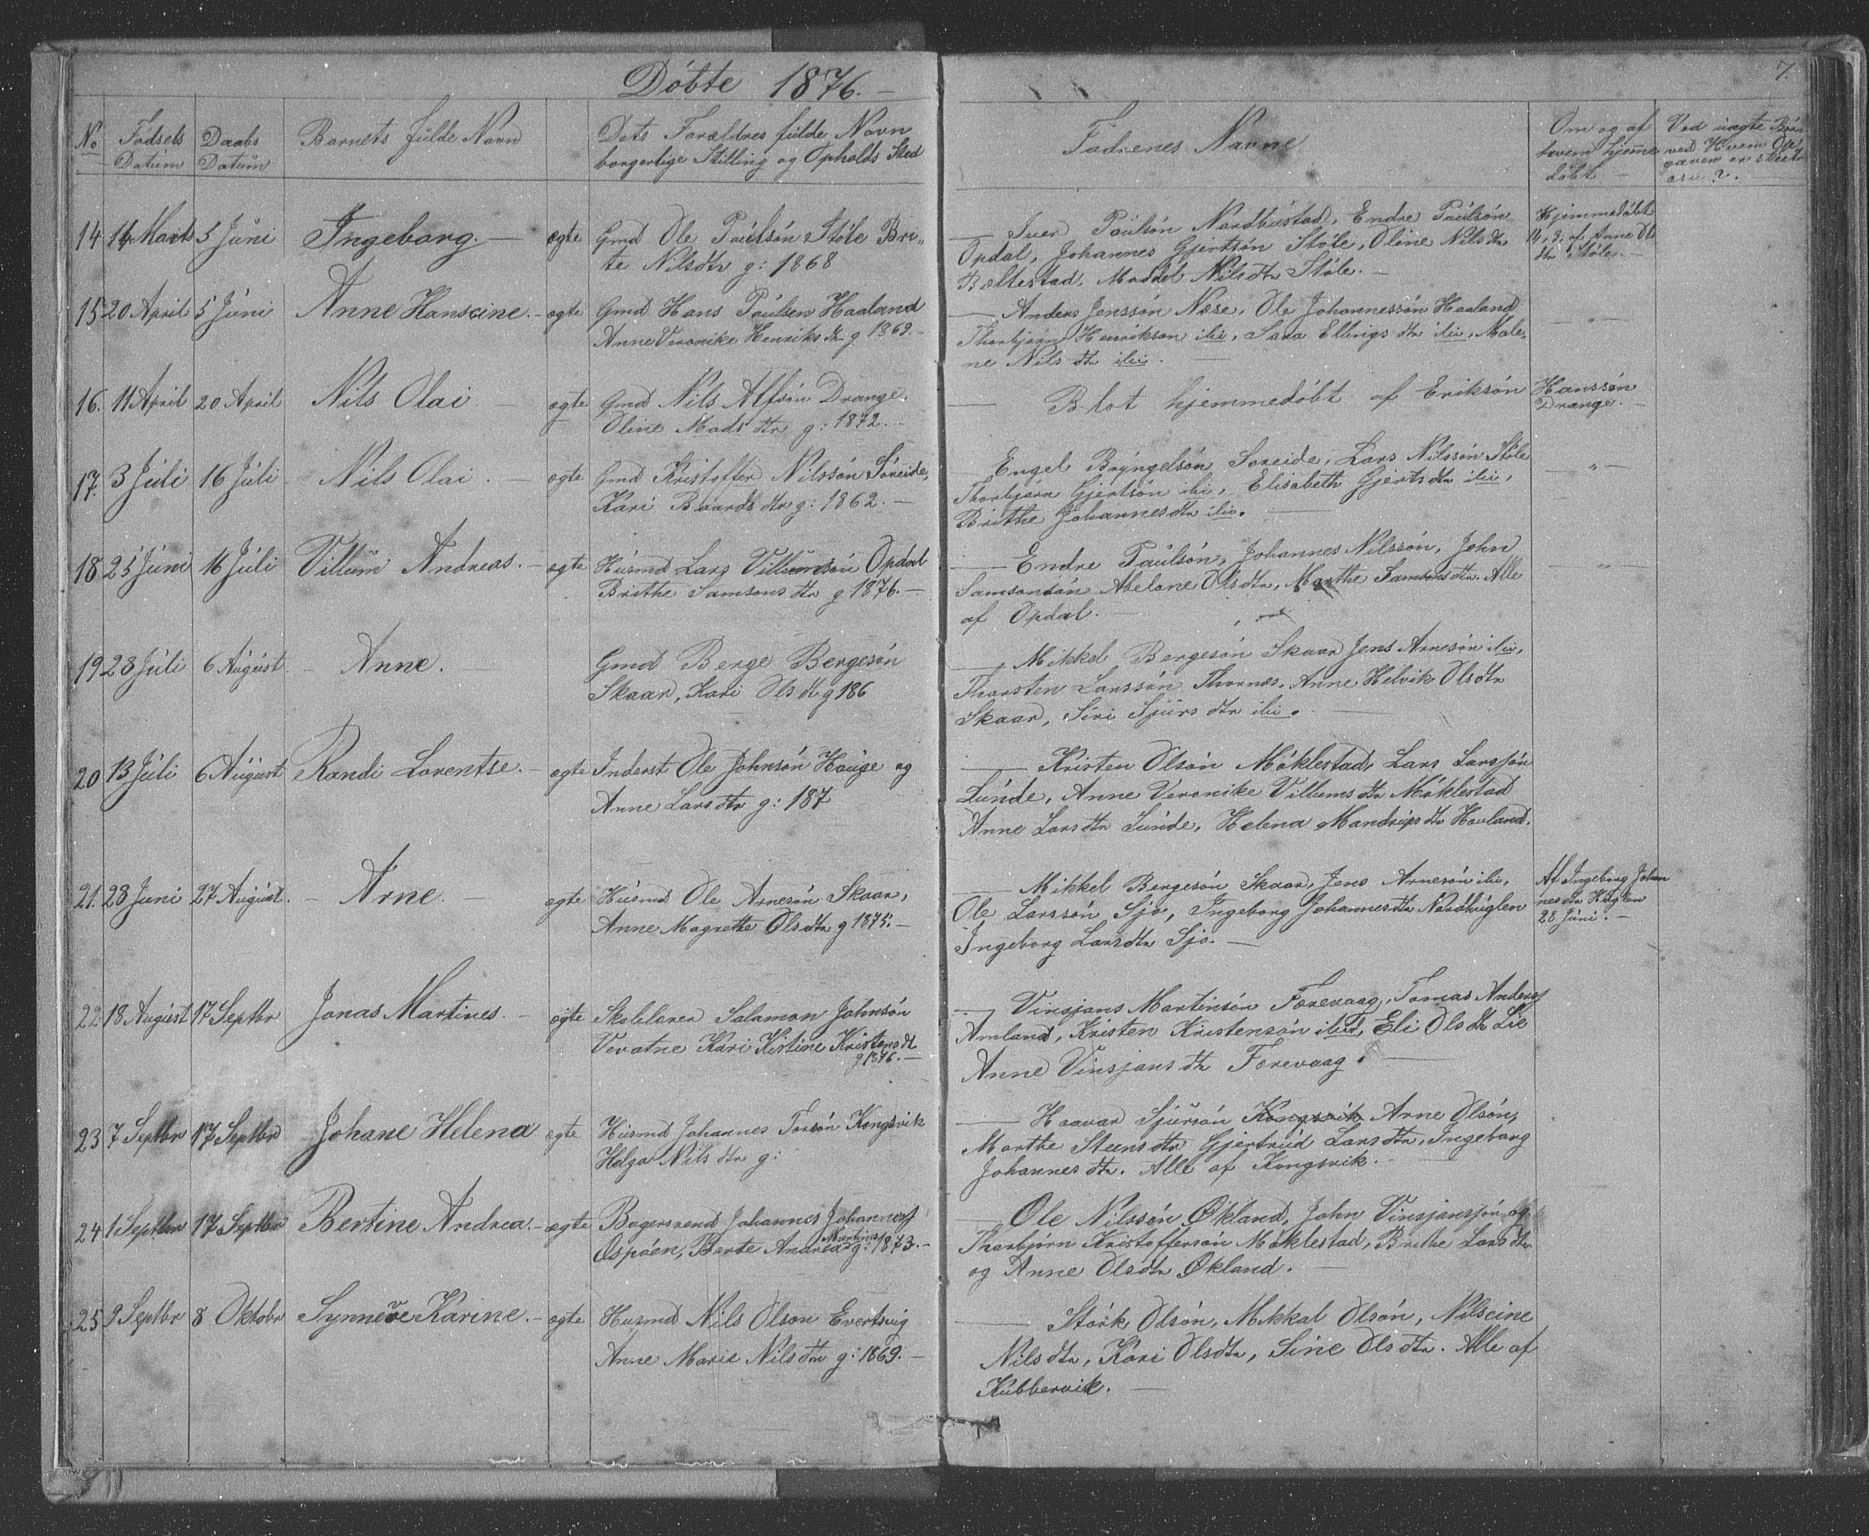 Döbte 1876.
7
No
Födsels
Datum
Daabs
Datum
Barnets fulde Navn
Dets Forældres fulde Navn
borgerlige Stilling og Opholds Sted
Fadrenes Navne
Om og af
hvem hjemme
döbt
Ved uægte Börn
ved Hvem
14 14 Marts 5 Juni Ingeborg. — ægte Gmd Ole Paulsön Stöle Bri-
te Nilsdtr g: 1868
— Iver Paulsön Nordhustad, Endre Paulsön
Opdal, Johannes Gjertsön Stöle, Oline Nilsdtr
Bæltestad, Madsel Nilsdtr Stöle. —
Hjemmedöbt
14. 3. af Anne Ols
dtr Stöle. —
15 20 April 5 Juni Anne Hanseine. — ægte Gmd Hans Paulsen Haaland
Anne Veronike Henriksdtr g 1869. —
— Anders Jenssön Nese, Ole Johannessön Haaland
Thorbjörn Henriksön ibi, Sara Ellingsdtr ibi, Male
ne Nilsdtr ibi. —
— " —
16. 11 April 20 April Nils Olai. — ægte Gmd Nils Alfsön Drange.
Oline Madsdtr g: 1872. —
— Blot hjemmedöbt af Eriksön Hanssön
Drange. —
17. 3 Juli 16 Juli Nils Olai. — ægte Gmd Kristoffer Nilssön Söreide,
Kari Baardsdtr g: 1862. —
— Engel Bryngelsön Soreide, Lars Nilssön Stöle
Thorbjörn Gjertsön ibi, Elisabeth Gjertsdtr ibi,
Brithe Johannesdtr ibi. —
— " —
18 25 Juni 16 Juli Villum Andreas. — ægte Husmd Lars Villumsön Opdal
Brithe Samsonsdtr g 1876. —
— Endre Paulsön, Johannes Nilssön, John
Samsonsön Abelone Olsdtr, Marthe Samsonsdtr. Alle
af Opdal. —
— " —
19 28 Juli 6 August — Anne. — Gmd Berge Bergesön
Skaar, Kari Olsdt g 186
— Mikkel Bergesön Skaar Jens Arnesön ibi,
Thorsten Larssön Thornes, Anne Helvik Olsdtr
Skaar, Siri Sjursdtr ibi. —
20 13 Juli 6 August Randi Lorentse. — ægte Inderst Ole Johnsön Hauge og
Anne Larsdtr g: 187
— Kristen Olsön Möklestad, Lars Larssön
Lunde, Anne Veronike Villumsdtr Möklestad
Anne Larsdtr Lunde, Helena Mandrupsdtr Havland.
21. 28 Juni 27 August. — Arne. — ægte Husmd Ole Arnesön Skaar,
Anne Magrethe Olsdtr g 1875. —
— Mikkel Bergesön Skaar, Jens Arnesön ibi,
Ole Larssön Sjo, Ingeborg Johannesdtr Nordhuglen
Ingeborg Larsdtr Sjo. —
Af Ingeborg Johan
nesdtr Huglen
28 Juni. —
22 18 August 17 Septbr Jonas Martines. — ægte Skolelærer Salamon Johnsön
Vevatne Kari Kirtine Kristensdt
g 1876. —
— Vinsjans Martinsön Forevaag, Tomas Anders
Amland, Kristen Kristensön ibi, Eli Olsdtr Lie
Anne Vinsjansdtr Forevaag. —
23 7 Septbr 17 Septbr Johane Helena ægte Husmd Johannes Torsön Kongsvik
Helga Nilsdtr g:
— Haavar Sjursön Kongsvik Arne Olsön,
Marthe Steensdtr Gjertrud Larsdtr, Ingeborg
Johannesdtr. Alle af Kongsvik. —
24 1 Septbr 17 Septbr Bertine Andrea. — ægte Bagersvend Johannes Johannes
Ospöen, Berte Andrea Martina g: 1873. —
— Ole Nilssön Økland, John Vinsjansjön og
Thorbjörn Kristoffersön Möklestad, Brithe Larsdtr
og Anne Olsdtr Økland. —
25 9 Septbr 8 Oktobr Synneve Karine. — ægte Husmd Nils Olson Evertsvig
Anne Marie Nilsdtr g: 1869. —
— Störk Olsön, Mikkal Olsön, Nilseine
Nilsdtr, Kari Olsdtr, Sine Olsdtr. Alle af
Kubbervik. —